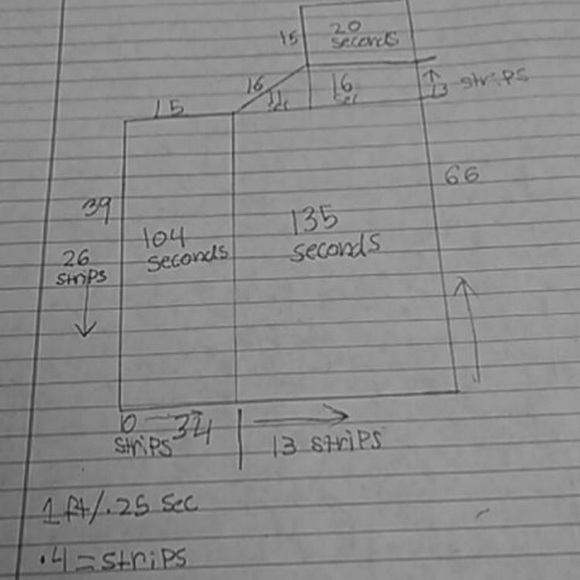 15 20
seconds
16
11
sec
16
sec
↑
13 strips
15
39
66
104
seconds
135
seconds
26
strips
↓
10 → 34
strips
13 strips
1 ft/.25 sec
.4 = strips